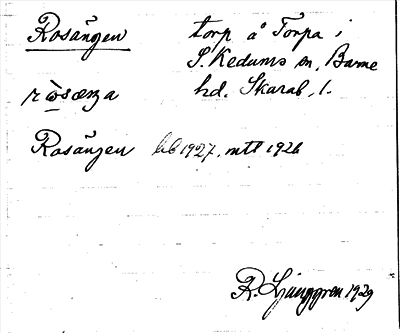 Rosängen torp å Torpa i
S. Kedums sn, Barne
hd. Skarab. l.
ròsæŋa
Rosängen hb 1927, mtl 1926
R. Ljunggren 1929